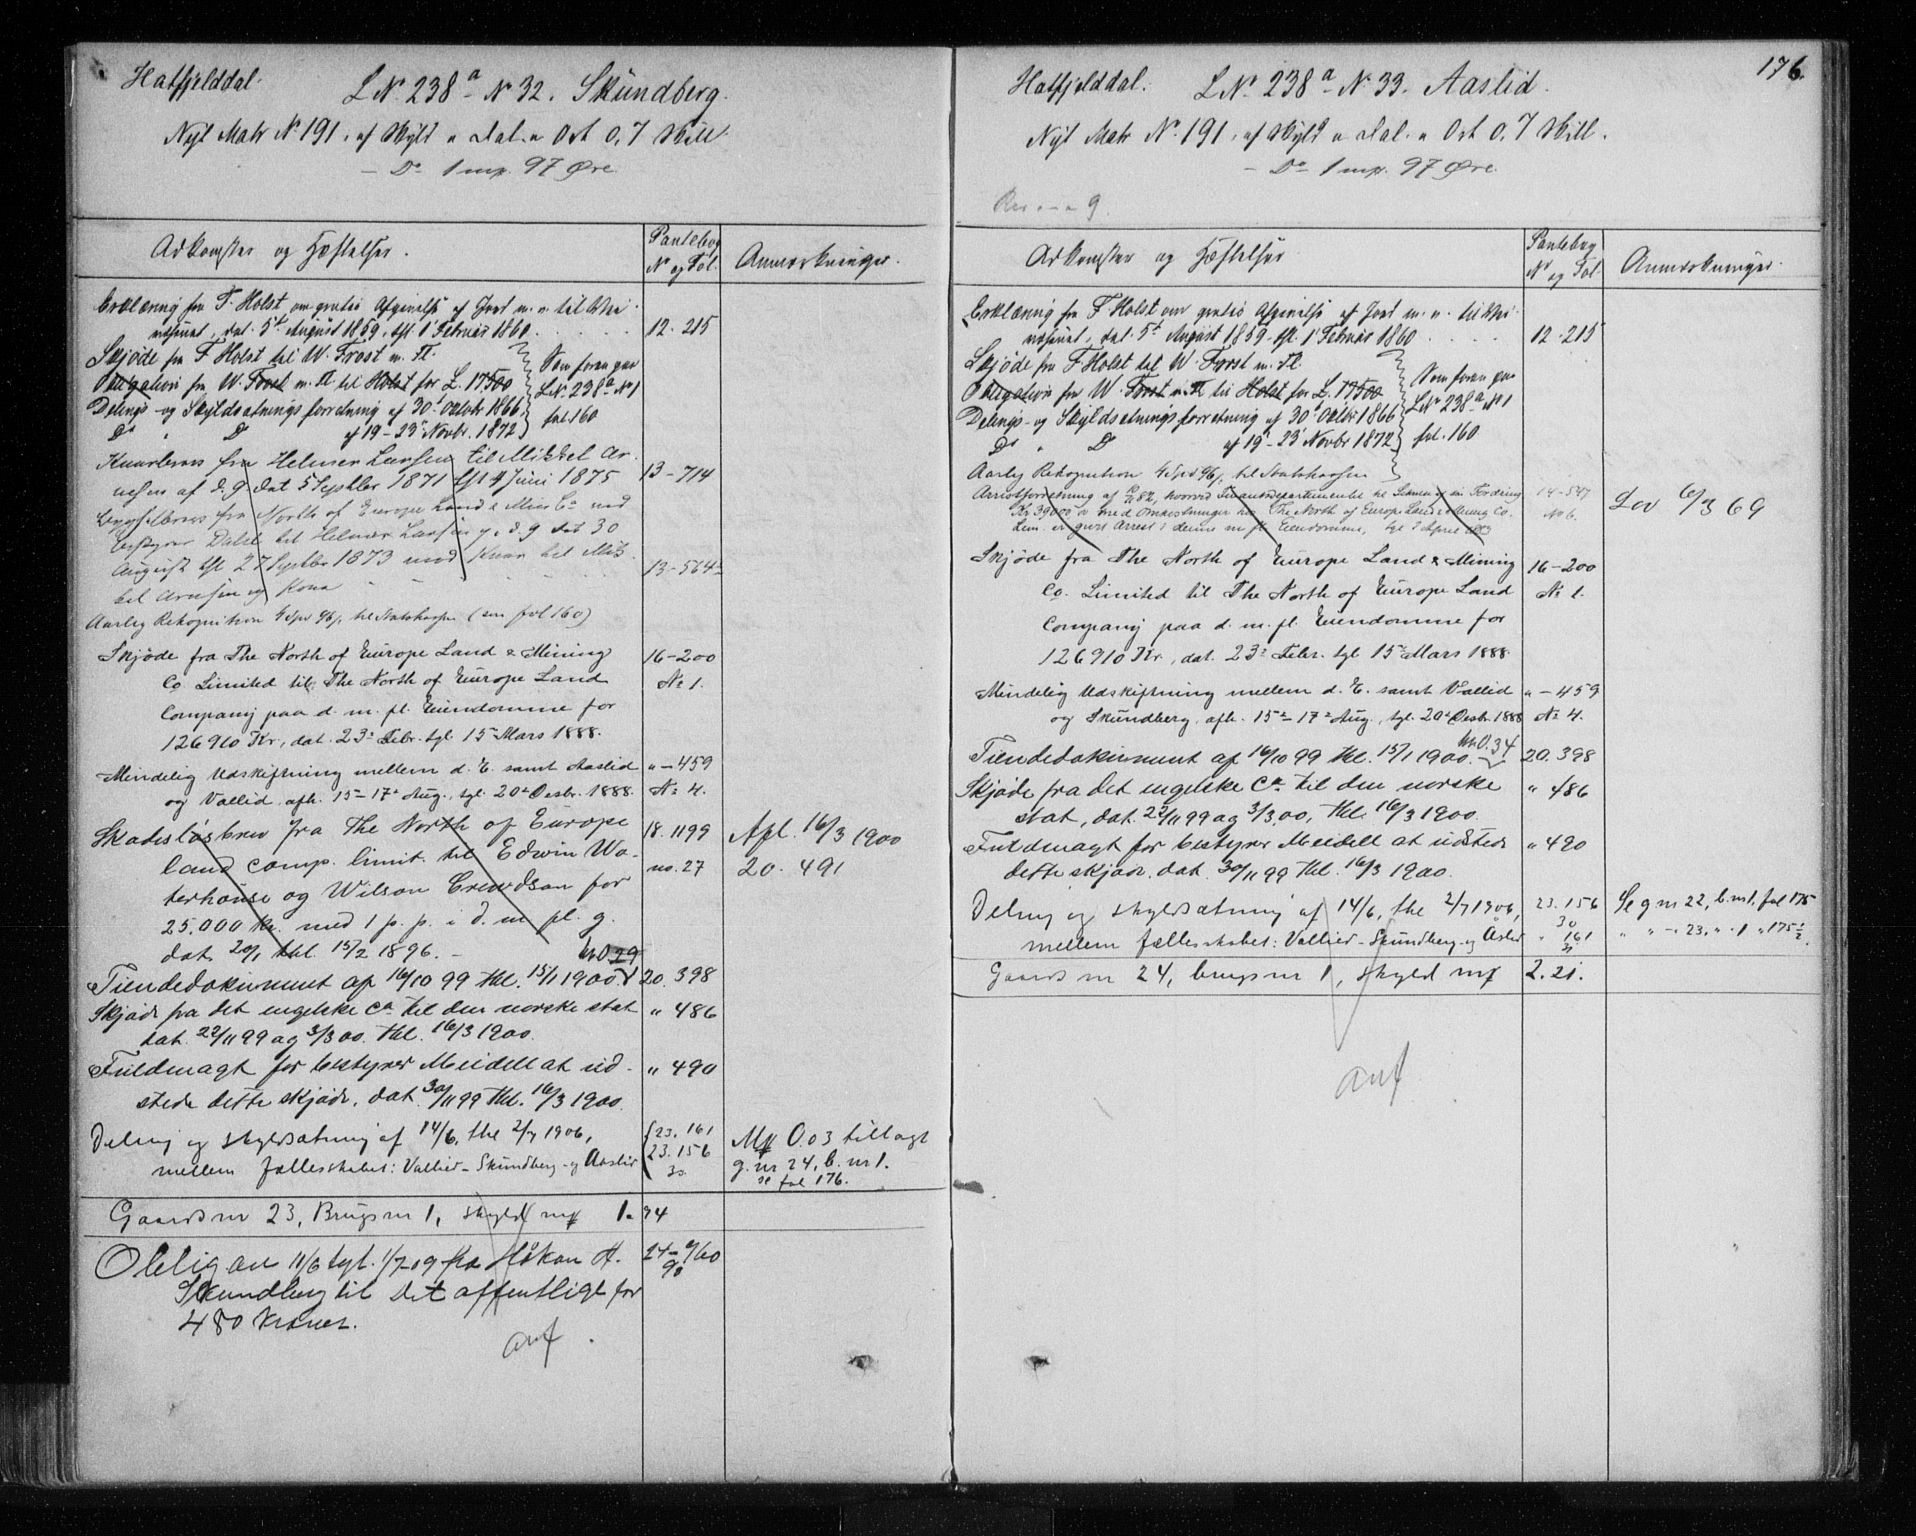 Hatfjelddal. L№ 238a - № 32. Skündberg.
Nyt Matr № 191, af Skyld " Dal. " Ort 0,7 Skill.
- Do 1 mp. 97 Øre.
Adkomster og Hæftelser.
Pantebog № og Fol.
Anmærkninger.
Erklæring fra F. Holst om gratis Afgivelse af Jord m. v. til Vei-
væsenet, dat. 5te August 1859, tgl. 1 Februar 1860. 12. 215
Skjøde fra F Holst til W. Frost m. Fl.
Obligation fra W. Frost m. Fl til Holst for L. 17500
Delings- og Skyldsætningsforretning af 30 Oktobr 1866
Do " Do af 19-23 Novbr. 1872
Som foran paa
L№ 238a № 1
fol. 160
fra Helmer Larsen til Mikkel Ar-
nesen af d. g. dat 5 Septbr 1871 tgl 4 Juni 1875 13-714
Bygselbrev fra North of Europe Land & Mine Co ved
Bestyrer Dahl til Helmer Larsen p. d. g dat 30
August tgl 27 Septbr 1873 med til Mik-
kel Arnesen og Kone 13-564
Aarlig Rekognition 4 Spd til Statskassen (som fol 160)
Skjøde fra The North of Europe Land & Mining 16-200
Co. Limited til The North of Europe Land № 1.
Company paa d. m. fl. Eiendomme for
126910 Kr., dat. 23. Febr. tgl. 15 Mars 1888.
Mindelig Udskiftning mellem d. E. samt Aaslid " - 459
og Vallid, afh. 15-17 Aug., tgl. 20 Desbr. 1888. № 4.
Skadesløsbrev fra The North of Europe 18. 1199 Afl. 16/3 1900
land comp. limit. til Edwin Wa- no. 27 20. 491
terhouse og Wilson Crewdson for
25.000 kr. med 1 p. p. i d. m. fl. g.
dat. 20/1 thl. 15/2 1896. -
Tiendedokument af 16/10 99 thl. 15/1 1900. 20. 398
Skjøde fra det engelske Co. til den norske stat " 486
dat. 22/11 99 og 3/3 00. thl. 16/3 1900.
Fuldmagt for bestyrer Meidell at ud- " 490
stede dette skjøde, dat. 30/11 99 thl. 16/3 1900.
Deling og skyldsætning af 14/6, thl 2/7 1906, 23. 161 Mp 0.03 tillagt
mellem fællesskabet: Vallied - Skundberg og Aaslid 23. 156 g. nr 24, b. nr 1.
30 se fol 176.
Gaards nr 23, Brugsnr 1, skyld mp 1.94
Oblig av 11/6 tgl. 1/7 09 fra Håkon A.
Skundberg til Det offentlige for
480 kroner.
anf.
176.
Hatfjelddal. L№ 238a - № 33. Aaslid.
Nyt Matr №. 191, af Skyld " Dal. " Ort 0,7 Skill.
- Do 1 mp. 97 Øre.
Adkomster og Hæftelser
Pantebog № og Fol.
Anmærkninger.
Erklæring fra F Holst om gratis Afgivelse af Jord m. v. til Vei-
væsenet, dat. 5te August 1859, tgl. 1 Februar 1860 12. 215
Skjøde fra F. Holst til W. Frost m. Fl.
Obligation fra W. Frost m. Fl til Holst for L. 17500
Delings- og Skyldsætningsforretning af 30 Oktbr 1866
Do " Do af 19-23 Novbr 1872
Som foran paa
L№ 238a № 1
fol. 160
Aarlig Rekognition 4 Spd til Statskassen
Arrestforretning af 82, hvorved Finantsdepartementet til Sikring af sin Fordring 14-547 Dov 6/3 69
Kr. 39000 med Omkostninger hos The North of Europe Land & Mining Co. № 6.
Lim. er gjort Arrest i denne m. fl. Eiendomme, tgl 2 April 1883
Skjøde fra The North of Europe Land & Mining 16-200
Co. Limited til The North of Europe Land № 1.
Company paa d. m. fl. Eiendomme for
126910 Kr., dat. 23. Febr. tgl. 15 Mars 1888.
Mindelig Udskiftning mellem d. E. samt Vallid " - 459
og Skundberg, afh. 15-17 Aug., tgl. 20 Desbr. 1888 № 4.
Tiendedokument af 16/10 99 thl. 15/1 1900. 20. 398
Skjøde fra det engelske Co. til den norske " 486
stat, dat. 22/11 99 og 3/3 00, thl. 16/3 1900.
Fuldmagt for bestyrer Meidell at udstede " 490
dette skjøde, dat. 30/11 99 thl. 16/3 1900.
Deling og skyldsætning af 14/6, thl 2/7 1906, 23. 156 Se g nr 22, b. nr 1, fol 175
mellem fællesskabet: Vallied - Skundberg og Aaslid " 161 " " - 23, " - 1 " 175½
Gaards nr 24, brugs nr 1, skyld mp 2.21.
anf